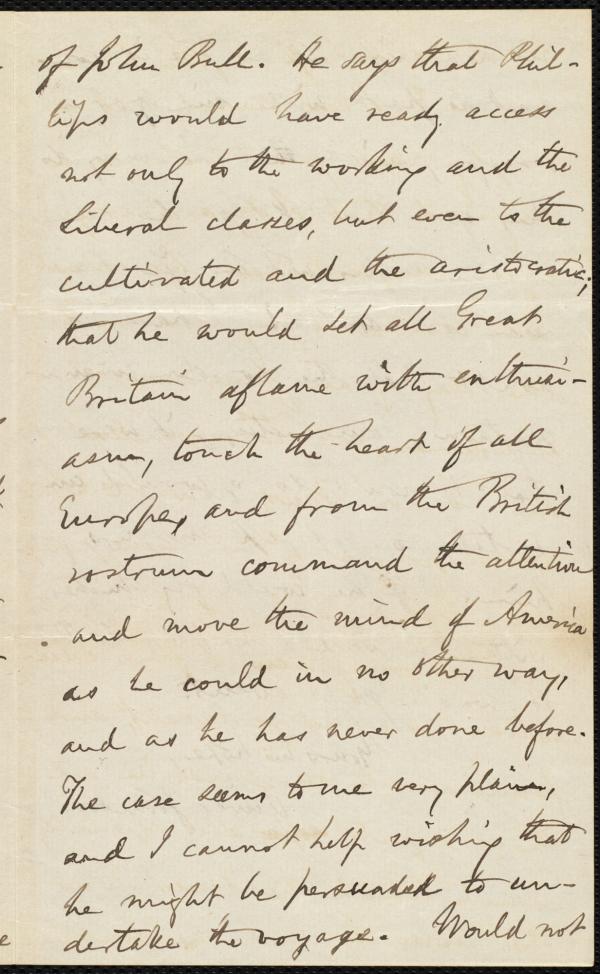 of John Bull. He says that Phil-
lips would have ready access
not only to the working and the
Liberal classes, but even to the
cultivated and the aristocratic;
that he would set all Great
Britain aflame with enthusi-
asm, touch the heart of all
Europe, and from the British
rostrum command the attention
and move the mind of America
as he could in no other way,
and as he has never done before.
The case seems to me very plain,
and I cannot help wishing that
he might be persuaded to un-
dertake the voyage. Would not